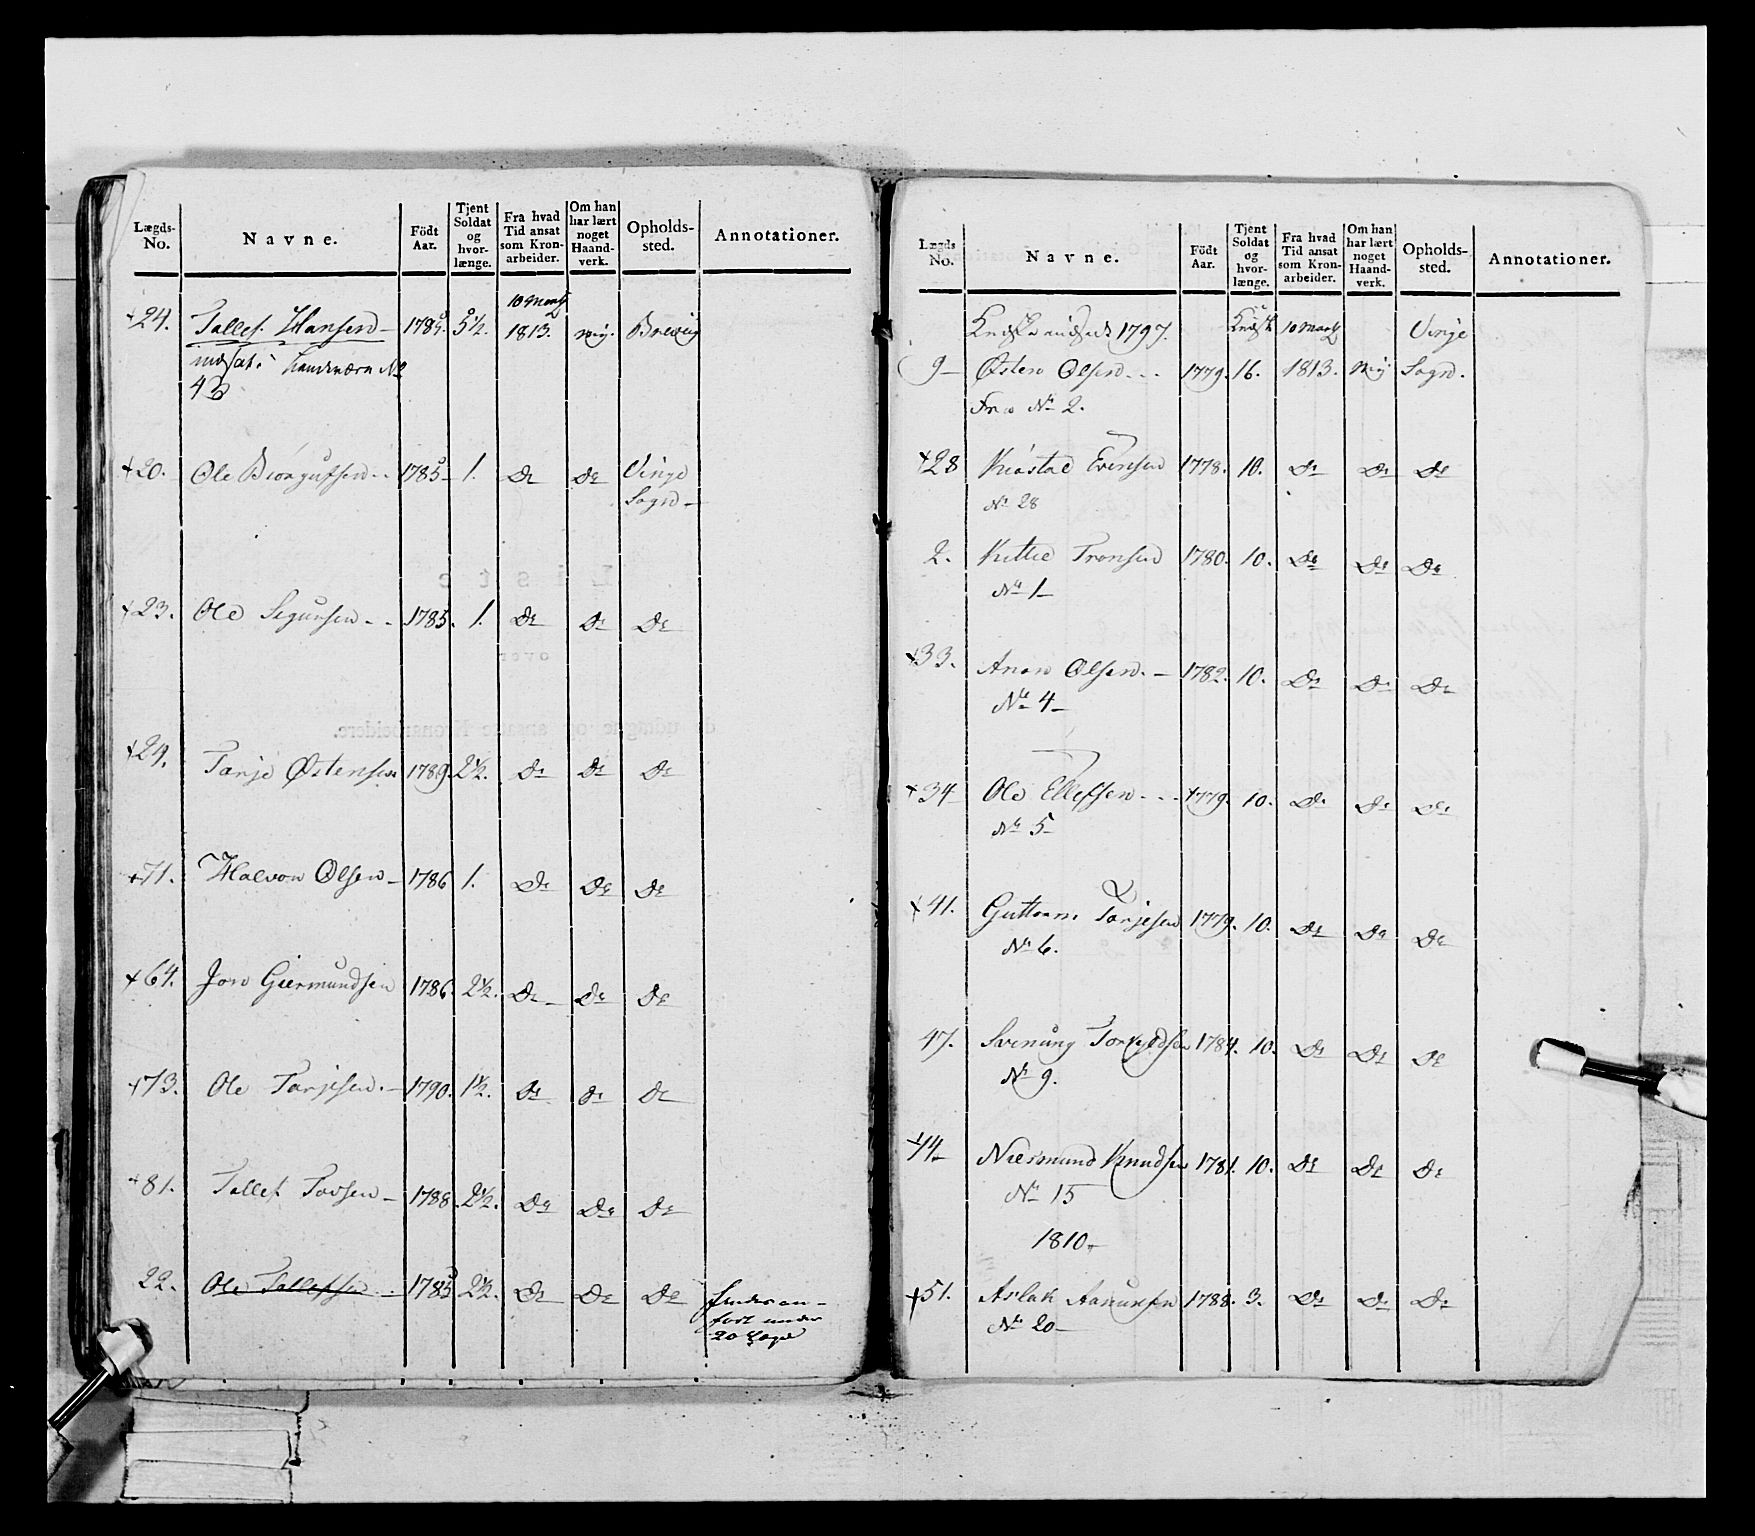 Lægds- No. | Navne. | Födt Aar. | Tjent Soldat og hvor- længe. | Fra hvad Tid ansat som Kron- arbeider. | Om han har lært noget Haand- verk. | Opholds- sted. | Annotationer.
+24. Tallef Hansen – 1785. 5½. 10 Marty 1813. Brevig
indsat i Landværn No
43
+20. Ole Biörgufsen – 1785 – 1. Do Do Vinje
Sogn –
+23. Ole Segursen – 1785. 1. Do Do Do
+24. Tarje Østensen 1789. 2½. Do Do Do
+71. Halvor Olsen – 1786 1. Do Do Do
+64. Jon Giermundsen 1786. 2½. Do Do Do
+73. Ole Tarjesen. – 1790. 1½. Do Do Do
+81. Tallef Tovsen – 1788. 2½. Do Do Do
22. Ole Tallefsen 1785 2½. Do Do Do
fort under
20 Lægd
Lægds No. | Navne. | Födt Aar. | Tjent Soldat og hvor- længe. | Fra hvad Tid ansat som Kron- arbeider. | Om han har lært noget Haand- verk. | Opholds- sted. | Annotationer.
1797. 10 Marty Vinje
9 – Østen Olsen – 1779. 16. 1813. Sogn.
Fra No 2.
+28 Evensen 1778. 10. Do Do Do
No 28
2. Kittil Tronsen 1780. 10. Do Do Do
No 1 –
+33. Anon Olsen. – 1782. 10. Do Do Do
No 4 –
+34 Ole Ellefsen – 1779. 10. Do Do Do
No 5 –
+41. Guttorm Tarjesen 1779. 10. Do Do Do
No 6.
47. Svenung Torkildsen 1784. 10. Do Do Do
No 9.
+44 Niermund Knudsen 1781. 10. Do Do Do
No 15
1810 –
+51. Aslak Aanunsen 1788. 3. Do Do Do
No 20 –